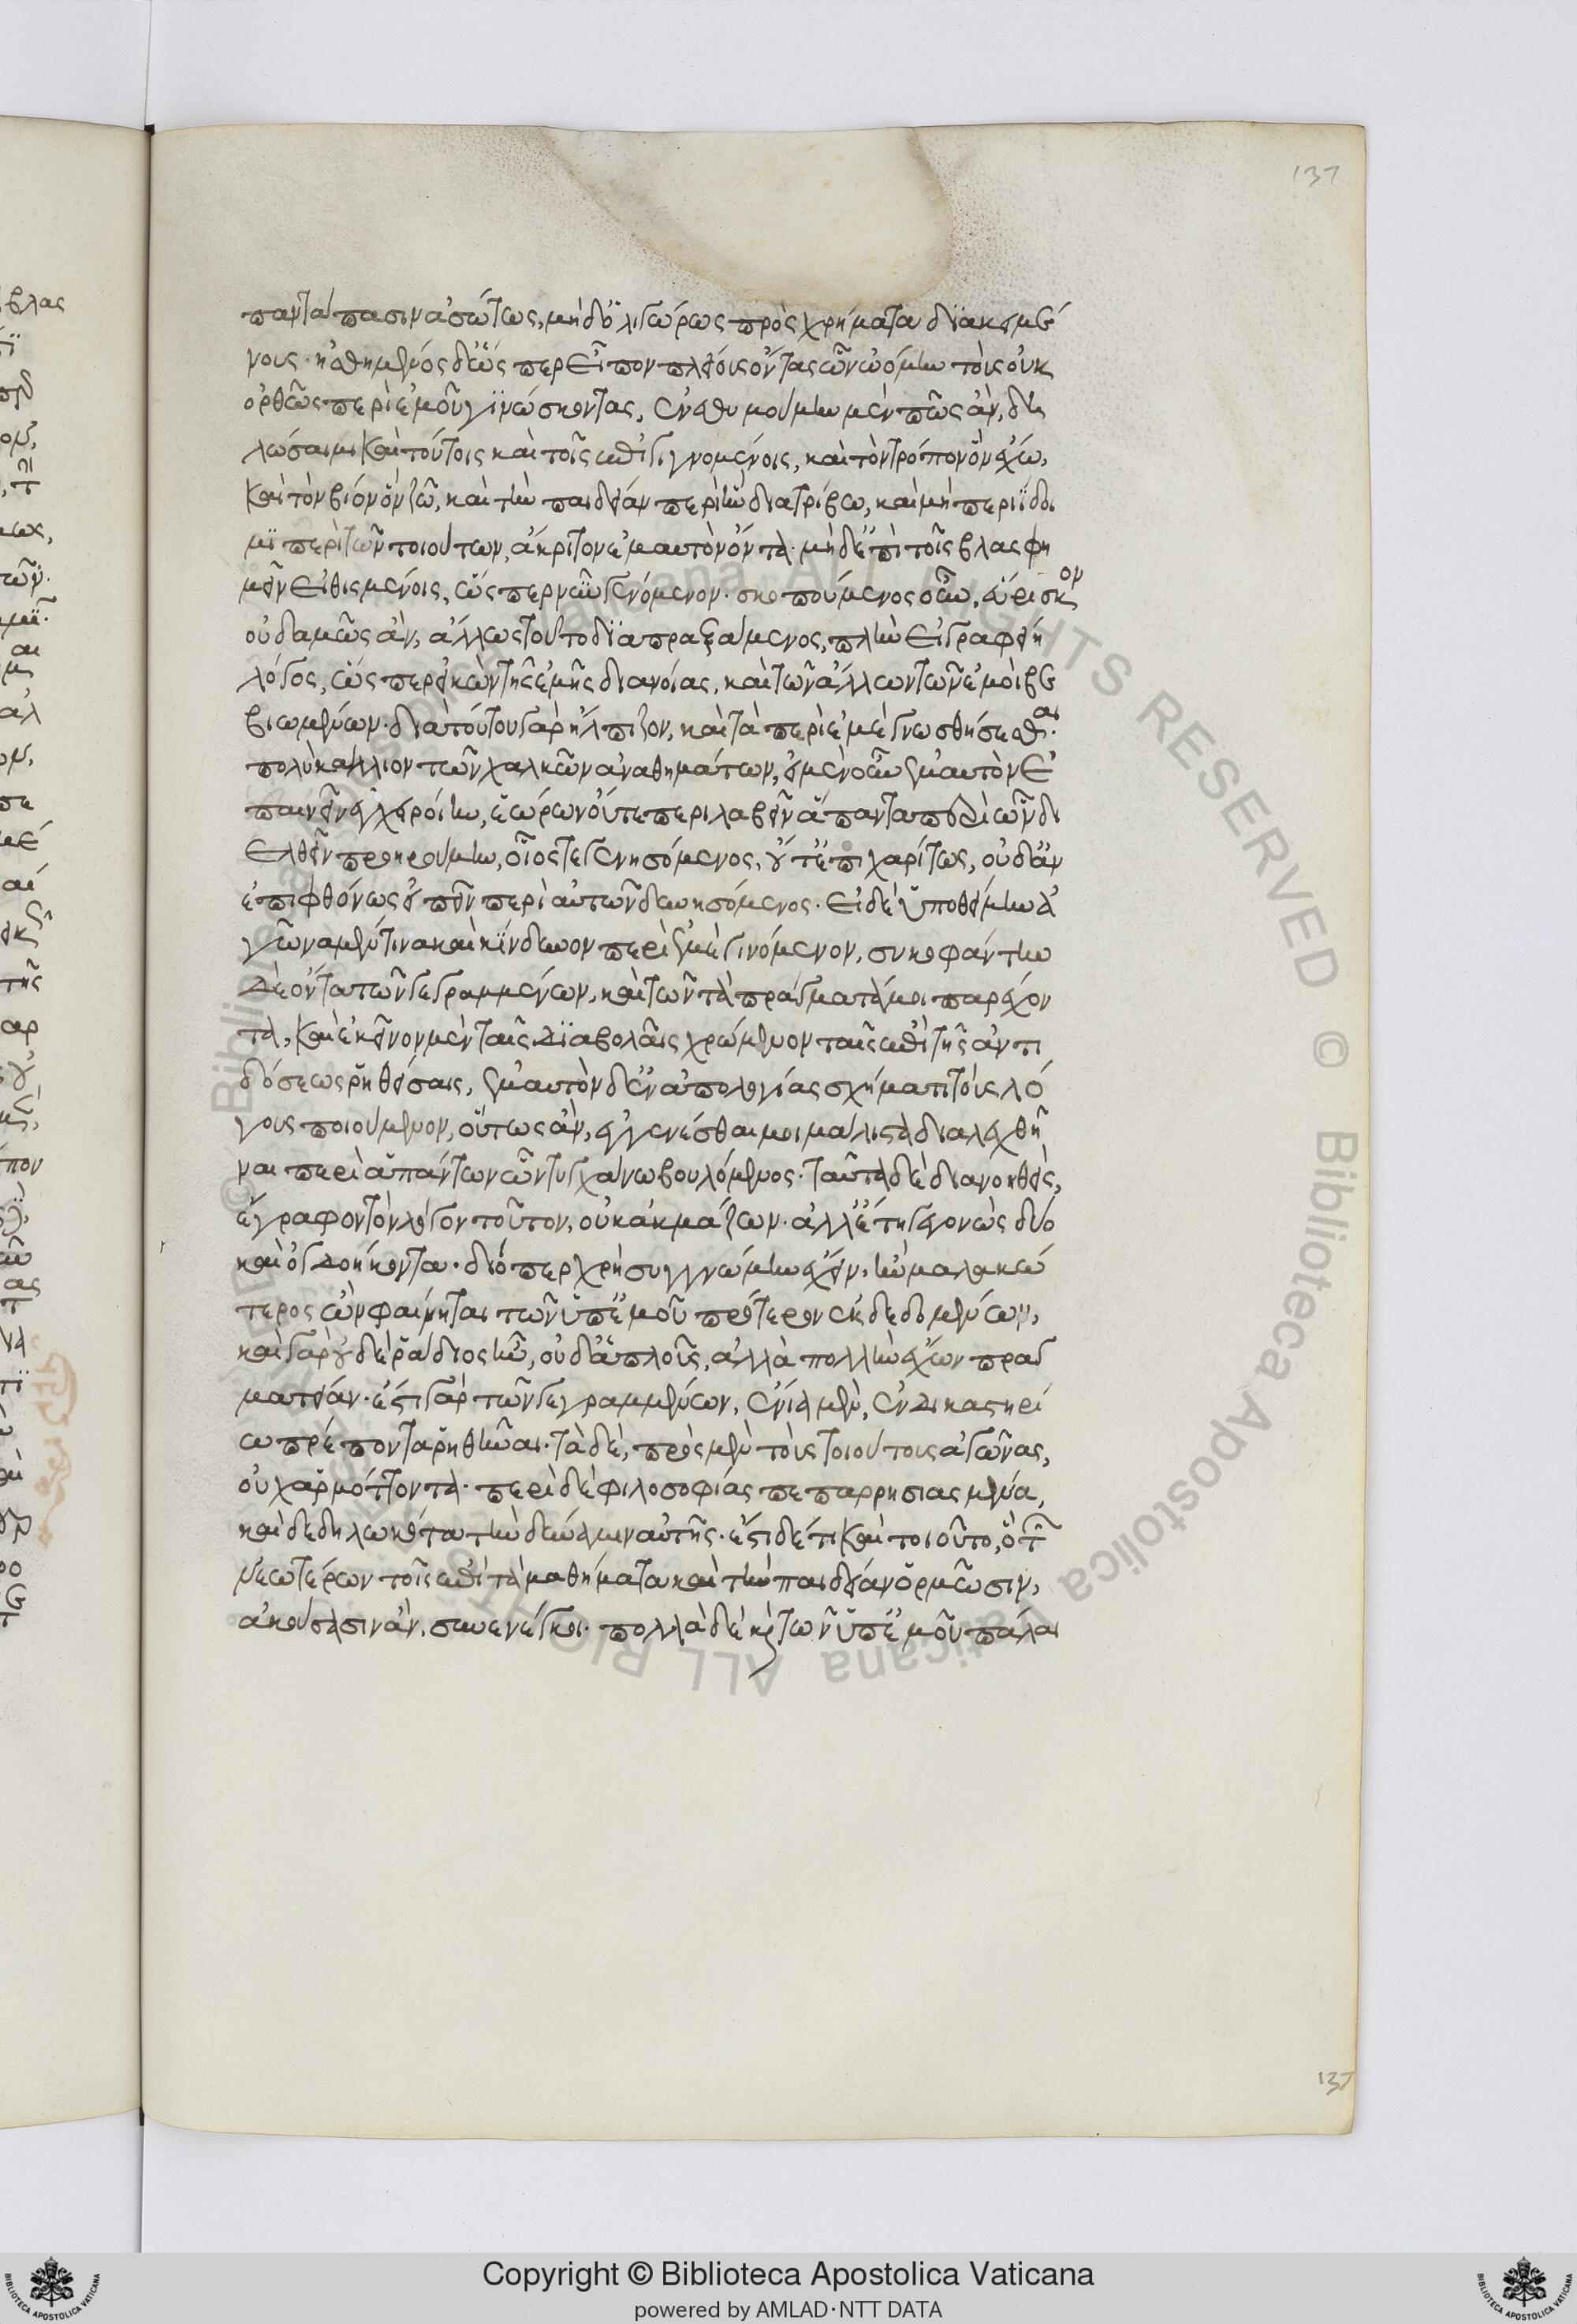 137
πανταπασιν ἀσώτως, μηδ ὀλιγώρως πρὸς χρήματα διακειμέ
νους· ᾐσθημένος δ ὥσπερ εἶπον πλείους ὄντας ὧν ᾠόμην τοὺς οὐκ
ὀρθῶς περὶ ἐμοῦ γινώσκοντας, ἐνεθυμούμην μὲν πῶς ἂν, δη
λώσαιμι καὶ τούτοις καὶ τοῖς ἐπιγιγνομένοις, καὶ τὸν τρόπον ὃν ἔχω,
καὶ τὸν βίον ὃν ζῶ, καὶ τὴν παιδείαν περὶ ἣν διατρίβω, καὶ μὴ περιΐδοι
μϊ περὶ τῶν τοιούτων, ἄκριτον ἐμαυτὸν ὄντα· μὴδ ἐπὶ τοῖς βλασφη
μεῖν εἰθισμένοις, ὥσπερ νῦν γενόμενον· σκοπούμενος οὖν, εὕρισκον
οὐδαμῶς ἂν, ἄλλως τοῦτο διαπραξάμενος, πλὴν εἰ γραφείη
λόγος, ὥσπερ εἰκὼν τῆς ἐμῆς διανοίας, καὶ τῶν ἄλλων τῶν ἐμοὶ βε
βιωμένων· διὰ τούτου γὰρ ἤλπιζον, καὶ τὰ περὶ ἐμὲ γνωσθήσεσθαι·
πολὺ κάλλιον τῶν χαλκῶν ἀναθημάτων, εἰ μὲν οὖν ἐμαυτὸν ἐ
παινεῖν ἐγχειροίην, ἑώρων οὔτε περιλαβεῖν ἅπαντα περὶ ὧν δι
ελθεῖν προῃρούμην, οἷός τε γενησόμενος, οὔτ ἐπιχαρίτως, οὐδ ἀν
επιφθόνως εἰπεῖν περὶ αὐτῶν δυνησόμενος· εἰ δὲ ὑποθείμην ἀ
γῶνα μέν τινα καὶ κίνδυνον περὶ ἐμὲ γινόμενον, συκοφάντην
δὲ ὄντα τῶν γεγραμμένων, καὶ τῶν τὰ πράγματά μοι παρασχόν
τα, καὶ ἐκεῖνον μὲν ταῖς διαβολαῖς χρώμενον ταῖς ἐπὶ τῆς ἀντι
δόσεως ῥηθείσαις, ἐμαυτὸν δ ἐν ἀπολογίας σχήματι τοὺς λό
γους ποιούμενον, οὕτως ἂν, ἐγγενέσθαι μοι μάλιστα διαλεχθῆ
ναι περὶ ἁπάντων ὧν τυγχάνω βουλόμενος· ταῦτα δὲ διανοηθεὶς,
ἔγραφον τὸν λόγον τοῦτον, οὐκ ἀκμάζων· ἀλλ ἔτη γεγονὼς δύο
καὶ ὀγδοήκοντα· διόπερ χρὴ συγγνώμην ἔχειν, ἢν μαλακώ
τερος ὢν φαίνηται τῶν ὑπ ἐμοῦ πρότερον ἐκδεδομένων,
καὶ γὰρ οὐδὲ ῥᾴδιος ἦν, οὐδ ἁπλοῦς, ἀλλὰ πολλὴν ἔχων πραγ
ματείαν· ἔστι γὰρ τῶν γεγραμμένων, ἔνια μὲν, ἐν δικαστηρί
ῳ πρέποντα ῥηθῆναι· τὰ δὲ, πρὸς μὲν τοὺς τοιούτους ἀγῶνας,
οὐχ ἁρμόττοντα· περὶ δὲ φιλοσοφίας πεπαρρησιασμένα,
καὶ δεδηλωκότα τὴν δύναμιν αὐτῆς· ἔστι δέ τι καὶ τοιοῦτο, ὃ τῶν
νεωτέρων τοῖς ἐπὶ τὰ μαθήματα καὶ τὴν παιδείαν ὁρμῶσιν,
ἀκούσασιν ἂν, συνενέγκοι· πολλὰ δὲ καὶ τῶν ὑπ ἐμοῦ πάλαι
137
Copyright © Biblioteca Apostolica Vaticana
powered by AMLAD·NTT DATA